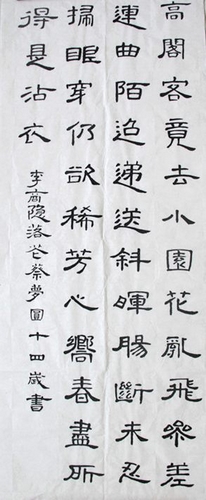 高閣客竟去小園花亂飛參差
連曲陌迢遞送斜暉腸斷未忍
掃眼穿仍欲稀芳心嚮春盡所
得是沾衣
李商隐落花蔡夢圓十四歲書